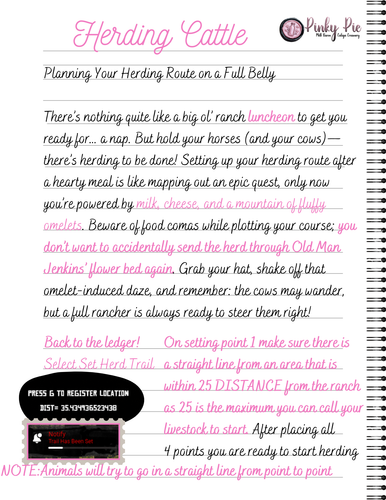 Herding Cattle
Pinky Pie
Planning Your Herding Route on a Full Belly
There's nothing quite like a big ol' ranch luncheon to get you
ready for... a nap. But hold your horses (and your cows)—
there's herding to be done! Setting up your herding route after
a hearty meal is like mapping out an epic quest, only now
you're powered by milk, cheese, and a mountain of fluffy
omelets. Beware of food comas while plotting your course; you
don't want to accidentally send the herd through Old Man
Jenkins' flower bed again. Grab your hat, shake off that
omelet-induced daze, and remember: the cows may wander,
but a full rancher is always ready to steer them right!
Back to the ledger!
Select Set Herd Trail
On setting point 1 make sure there is
a straight line from an area that is
within 25 DISTANCE from the ranch
as 25 is the maximum you can call your
livestock to start. After placing all
4 points you are ready to start herding
PRESS G TO REGISTER LOCATION
DIST= 35.434936523438
NOTE:Animals will try to go in a straight line from point to point